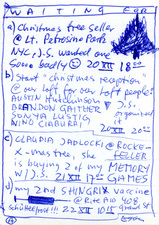 WAITING FOR
a) Christmas tree seller
@ Lt. Petrosino Park
NYC, J.S. wanted one
soo badly ☺ 20 XII 18 00
b) Start "christmas reception"
@ our loft for our loft people
AUSTIN HUTCHINSON
BRANDON GAMES J.S.
SONYA LUSTIG organized it
NINO CHUBUR
20 XII 20 00
c) CLAUDIA JADLOCKI @ ROCKE-
FELLER
X-mas tree, she
is buying 2 of my MEMORY
W/ J.S. 21 XII 17 00 GAMES
d) my 2nd SHINGRIX vaccine
@ RITE AID 408
Grand St
22 XII 10 15